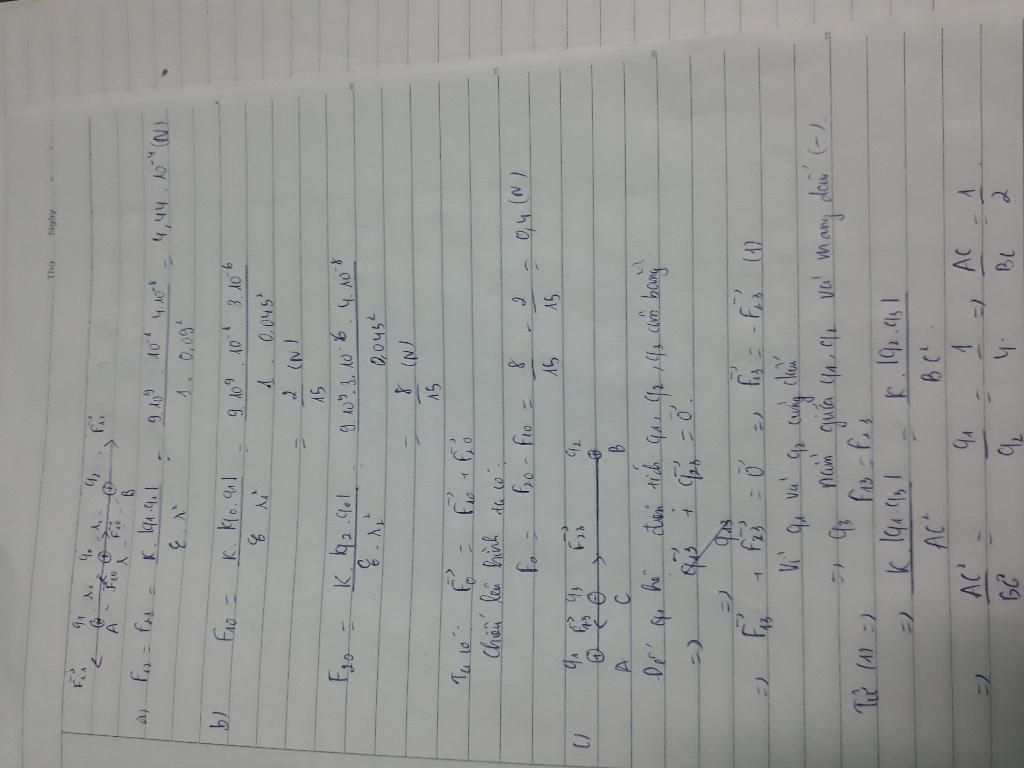 Thứ ..... Ngày .....
F₂₁ q₁ r₁ q₀ r₂ q₂ F₁₂
A F₁₀ r F₂₀ B
a) F₁₂ = F₂₁ = K.|q₁.q₂| / ε.r² = 9.10⁹.10⁻⁸.4.10⁻⁸ / 1.0,09² = 4,44.10⁻⁴ (N)
b) F₁₀ = K.|q₀.q₁| / ε.r² = 9.10⁹.10⁻⁸.3.10⁻⁶ / 1.0,045²
= 2/15 (N)
F₂₀ = K|q₂.q₀| / ε.r₂² = 9.10⁹.3.10⁻⁶.4.10⁻⁸ / 0,045²
= 8/15 (N)
Ta có: F₀ = F₁₀ + F₂₀
Chiếu lên hình ta có:
F₀ = F₂₀ - F₁₀ = 8/15 - 2/15 = 0,4 (N)
c) q₁ F₁₃ q₃ F₂₃ q₂
A C B
Để hệ điện tích q₁, q₂, q₃ cân bằng
=> q₁₃ + q₂₃ = 0
=> q₁₃
=> F₁₃ + F₂₃ = 0 => F₁₃ = - F₂₃ (1)
Vì q₁ và q₂ cùng dấu
=> q₃ nằm giữa q₁, q₂ và mang dấu (-).
Từ (1) => F₁₃ = F₂₃
=> K.|q₁.q₃| / AC² = K.|q₂.q₃| / BC²
=> AC²/BC² = q₁/q₂ = 1/4 => AC/BC = 1/2